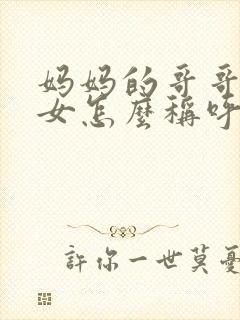 妈妈的哥哥
女怎麼稱呼
許你一世莫憂